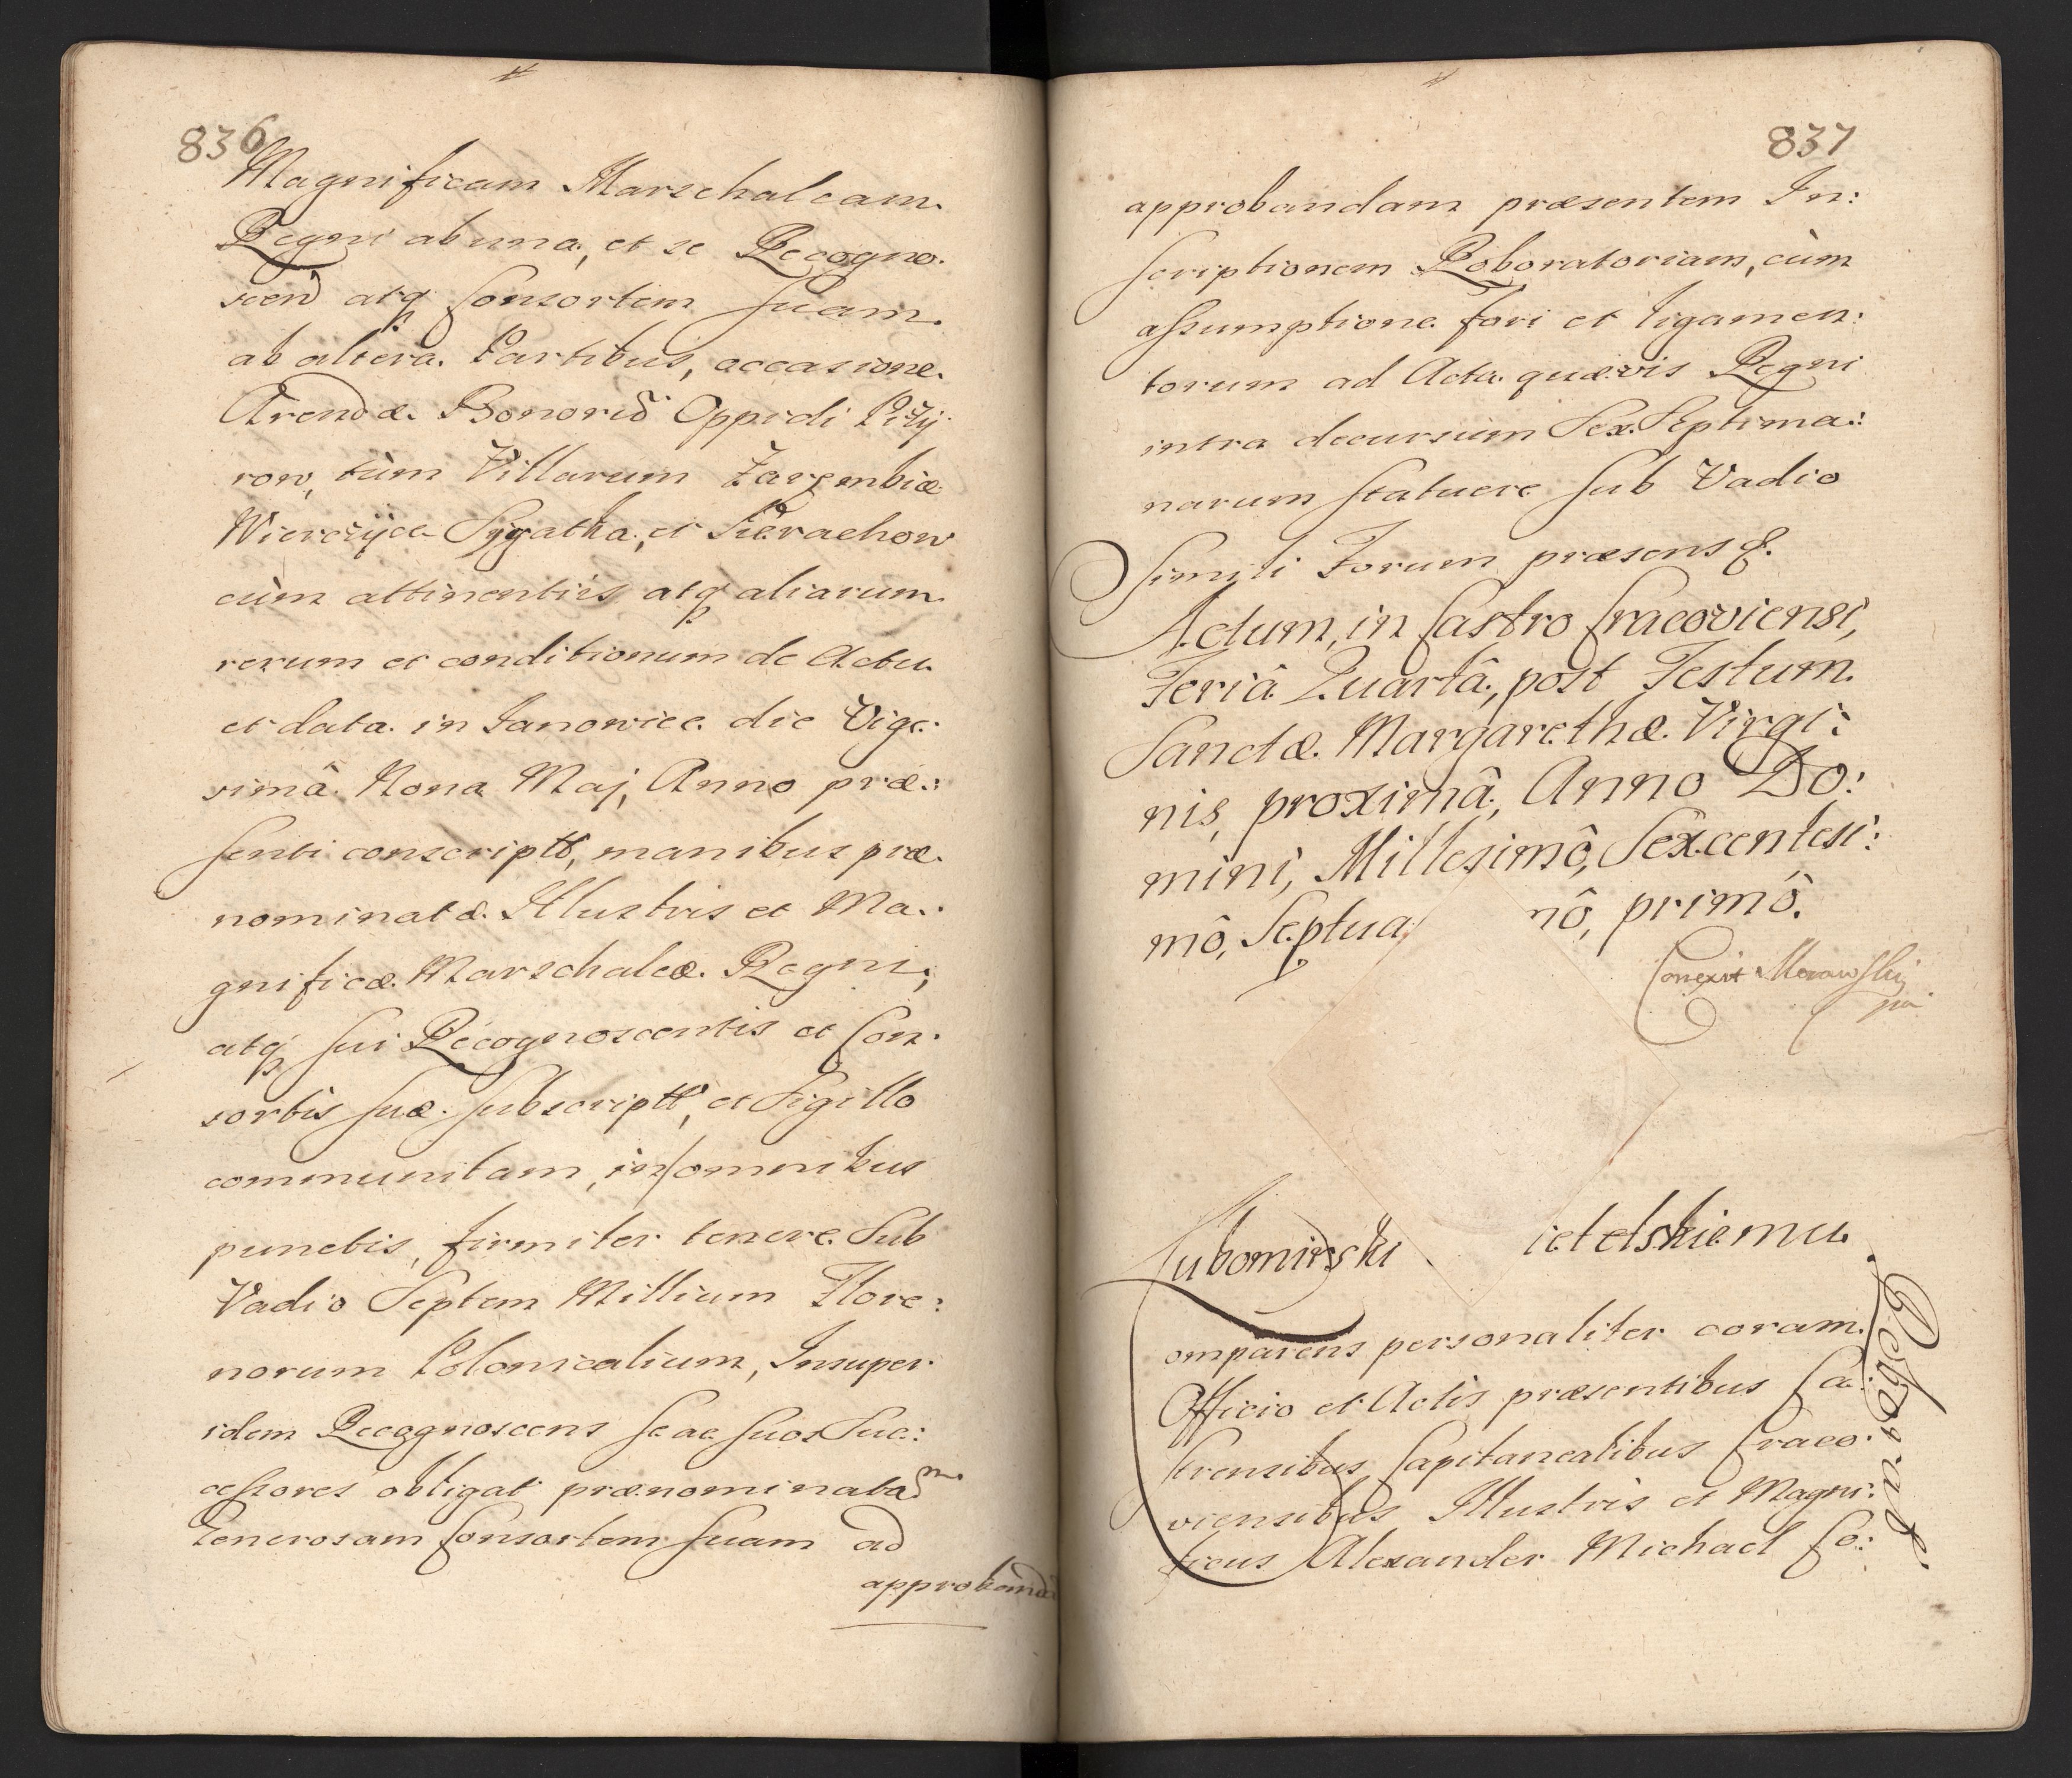 836
Magnificam Marschalcam
Regni ab una, et se Recogno:
scen̄ atq̨ Consortem suam
ab altera Partibus, occasione
Arendæ Bonorū Oppidi Pilij
row, tùm Villarum Zarembiæ
Wierczyca Sygatka, et Sierachow
cùm attinentiis atq̨ aliarum
rerum et conditionum de Actu
et data in Janowiec die Vige:
simâ Nona Maj, Anno præ:
senti conscriptt, manibus præ
nominatæ Illustris et Ma:
gnificæ Marschalcæ Regni,
atq̨ sui Recognoscentis et Con:
sortis suæ subscriptt, et Sigillo
communitam, in omnibus
punctis, firmiter tenere Sub
Vadio Septem Millium Flore:
norum Polonicalium, Insuper
idem Recognoscens se ac suos Suc:
cessores obligat prænominatam
Generosam Consortem suam ad
approbandā
837
approbandam præsentem In:
scriptionem Roboratoriam, cùm
assumptione fori et ligamen:
torum ad Acta quævis Regni
intra decursum Sex Septima:
narum statuere sub Vadio
Simili Forum præsens &.
Actum, in Castro Cracoviensi,
Feriâ Quartâ, post Festum
Sanctæ Margarethæ Virgi:
nis, proximâ, Anno Do:
mini, Millesimô, Sexcentesi:
mô, Septua nô, primô.
Conexit Morawskij
pa
Lubomirski ietelskiemu
Comparens personaliter coram
Officio et Actis præsentibus Ca:
strensibus Capitanealibus Craco:
viensibus Illustris et Magni:
ficus Alexander Michael Co: